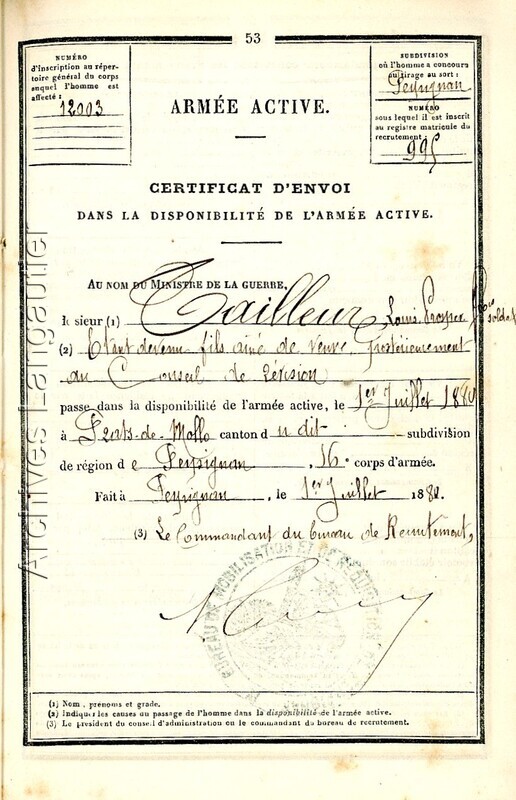 53
NUMÉRO
d'inscription au réper-
toire général du corps
auquel l'homme est
affecté :
12003
SUBDIVISION
où l'homme a concouru
au tirage au sort :
Perpignan
NUMÉRO
sous lequel il est inscrit
au registre matricule du
recrutement :
995
ARMÉE ACTIVE.
CERTIFICAT D'ENVOI
DANS LA DISPONIBILITÉ DE L'ARMÉE ACTIVE.
AU NOM DU MINISTRE DE LA GUERRE,
le sieur (1) Tailleur, Louis Prosper soldat
(2) Etant devenu fils ainé de veuve, postérieurement
au Conseil de révision
passe dans la disponibilité de l'armée active, le 1er Juillet 1880
à Prats-de-Mollo canton du dit subdivision
de région de Perpignan, 16e corps d'armée.
Fait à Perpignan, le 1er Juillet 1880.
(3) Le Commandant du bureau de Recrutement,
BUREAU DE MOBILISATION ET DE
(1) Nom, prénoms et grade.
(2) Indiquer les causes du passage de l'homme dans la disponibilité de l'armée active.
(3) Le président du conseil d'administration ou le commandant du bureau de recrutement.
Archives Langautier